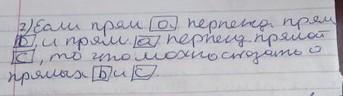 2) Если прям a перпенд прям
b и прям a перпенд прямой
c, то что можно сказать о
прямых b и c.